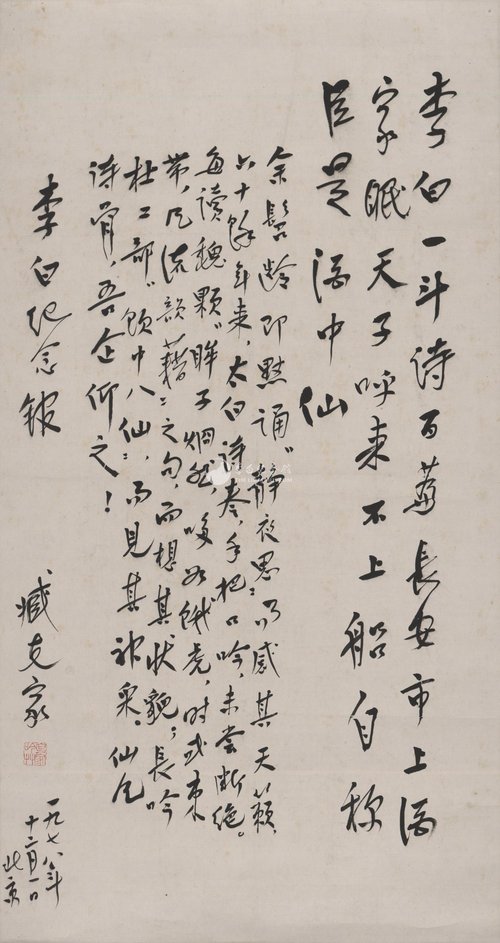 李白一斗诗百篇长安市上酒
家眠天子呼来不上船自称
臣是酒中仙
余髫龄即默诵“静夜思”,感其天籁,
六十余年来,太白诗卷,手把口吟,未尝断绝。
每读魏颗“眸子炯然,哆如饿虎,时或束
带,风流韵藉”之句,而想其状貌;长吟
杜工部“饮中八仙”,而见其神采。仙风
诗骨,吾企仰之!
李白纪念馆
臧克家
一九七八年
十二月一日
北京